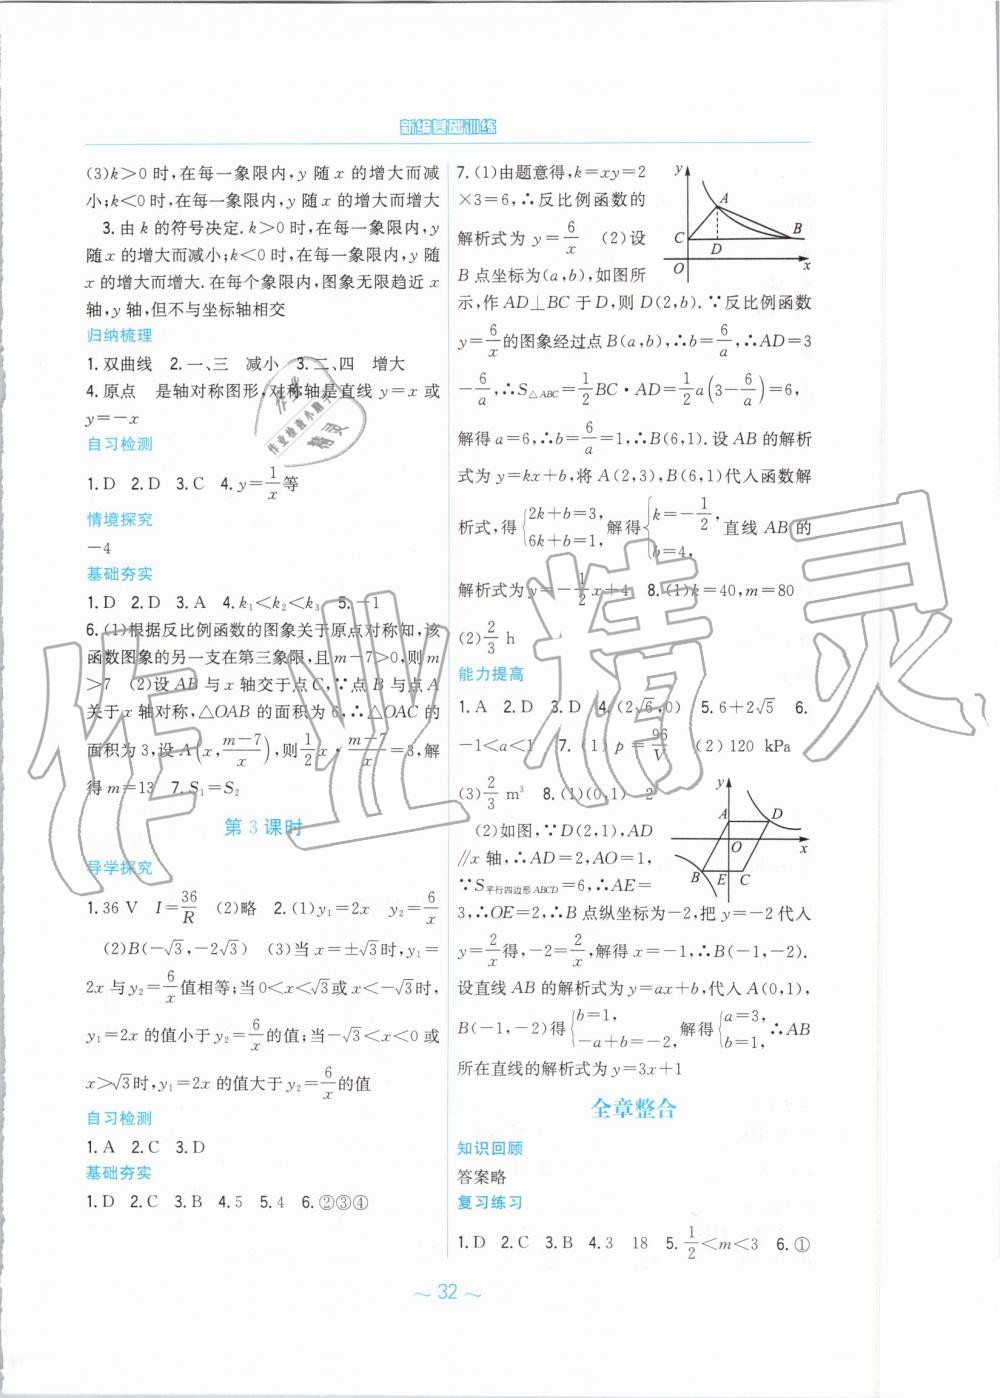 新编基础训练
(3)k＞0 时,在每一象限内,y 随 x 的增大而减
小;k＜0 时,在每一象限内,y 随 x 的增大而增大
3. 由 k 的符号决定. k＞0 时,在每一象限内,y
随 x 的增大而减小;k＜0 时,在每一象限内,y 随
x 的增大而增大. 在每个象限内,图象无限趋近 x
轴,y 轴,但不与坐标轴相交
归纳梳理
1. 双曲线 2. 一、三 减小 3. 二、四 增大
4. 原点 是轴对称图形,对称轴是直线 y＝x 或
y＝－x
自习检测
1. D 2. D 3. C 4. y＝1/x等
情境探究
－4
基础夯实
1. D 2. D 3. A 4. k₁＜k₂＜k₃ 5. －1
6. (1)根据反比例函数的图象关于原点对称知,该
函数图象的另一支在第三象限,且 m－7＞0,则 m
＞7 (2)设 AB 与 x 轴交于点 C,∵点 B 与点 A
关于 x 轴对称,△OAB 的面积为 6,∴△OAC 的
面积为 3,设 A(x, (m－7)/x),则 1/2 x·(m－7)/x＝3,解
得 m＝13 7. S₁＝S₂
第 3 课时
导学探究
1. 36 V I＝36/R (2)略 2. (1)y₁＝2x y₂＝6/x
(2)B(－√3,－2√3) (3)当 x＝±√3时,y₁＝
2x 与 y₂＝6/x值相等;当 0＜x＜√3或 x＜－√3时,
y₁＝2x 的值小于 y₂＝6/x的值;当－√3＜x＜0 或
x＞√3时,y₁＝2x 的值大于 y₂＝6/x的值
自习检测
1. A 2. C 3. D
基础夯实
1. D 2. C 3. B 4. 5 5. 4 6. ②③④
7. (1)由题意得,k＝xy＝2
×3＝6,∴反比例函数的
解析式为 y＝6/x (2)设
B 点坐标为(a,b),如图所
y
A
C
D
B
O
x
示,作 AD⊥BC 于 D,则 D(2,b). ∵反比例函数
y＝6/x的图象经过点 B(a,b),∴b＝6/a,∴AD＝3
－6/a,∴S△ABC＝1/2 BC·AD＝1/2 a(3－6/a)＝6,
解得 a＝6,∴b＝6/a＝1,∴B(6,1). 设 AB 的解析
式为 y＝kx＋b,将 A(2,3),B(6,1)代入函数解
析式,得{2k＋b＝3, 6k＋b＝1, 解得{k＝－1/2, b＝4, 直线 AB 的
解析式为 y＝－1/2 x＋4 8. (1)k＝40,m＝80
(2)2/3 h
能力提高
1. A 2. D 3. D 4. (2√6,0) 5. 6＋2√5 6.
－1＜a＜1 7. (1) p＝96/V (2) 120 kPa
(3)2/3 m³ 8. (1)(0,1) 2
(2)如图,∵D(2,1),AD
∥x 轴,∴AD＝2,AO＝1,
∵S平行四边形ABCD＝6,∴AE＝
y
A
D
O
x
B
E
C
3,∴OE＝2,∴B 点纵坐标为－2,把 y＝－2 代入
y＝2/x得,－2＝2/x,解得 x＝－1,∴B(－1,－2).
设直线 AB 的解析式为 y＝ax＋b,代入 A(0,1),
B(－1,－2)得{b＝1, －a＋b＝－2, 解得{a＝3, b＝1, ∴AB
所在直线的解析式为 y＝3x＋1
全章整合
知识回顾
答案略
复习练习
1. D 2. C 3. B 4. 3 18 5. 1/2＜m＜3 6. ①
～ 32 ～
作业精灵
作业
作业检查小助手
精灵